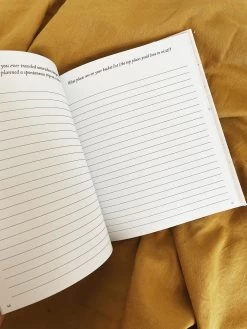 you ever traveled somewhere
planned a spontaneous
What places are on your bucket list (the top places you'd love to visit)?